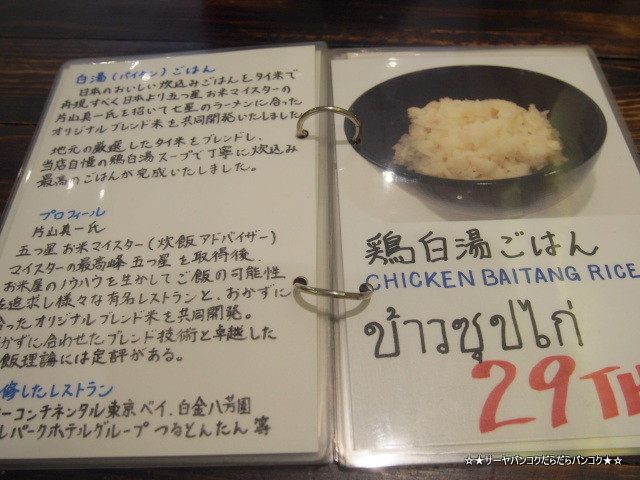 白湯(パイタン)ごはん
日本のおいしい炊込みごはんをタイ米で
再現すべく日本より五つ星お米マイスターの
片山真一氏を招いて七星のラーメンに合った
オリジナルブレンド米を共同開発いたしました
地元の厳選したタイ米をブレンドし、
当店自慢の鶏白湯スープで丁寧に炊込み
最高のごはんが完成いたしました。
プロフィール
片山真一氏
五つ星お米マイスター(炊飯アドバイザー)
マイスターの最高峰五つ星を取得後、
お米屋のノウハウを生かしてご飯の可能性
を追求し様々な有名レストランと、おかずに
合ったオリジナルブレンド米を共同開発。
かずに合わせたブレンド技術と卓越した
飯理論には定評がある。
修したレストラン
ーコンチネンタル東京ベイ、白金八芳園
パークホテルグループ つるとんたん 等
鶏白湯ごはん
CHICKEN BAITANG RICE
ข้าวซุปไก่
29TH
☆★サーヤバンコクだらだらバンコク★☆